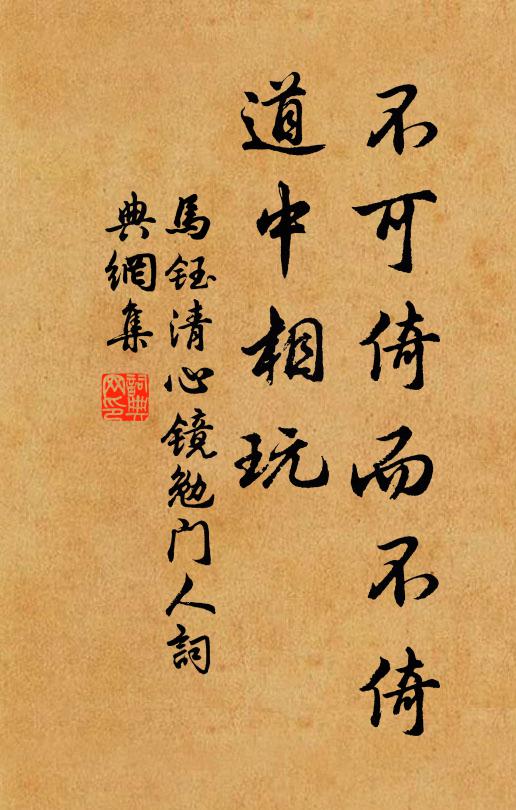 不可倚而不倚
道中相玩
馬鈺清心鏡勉门人詞
典網集
詞典
网印